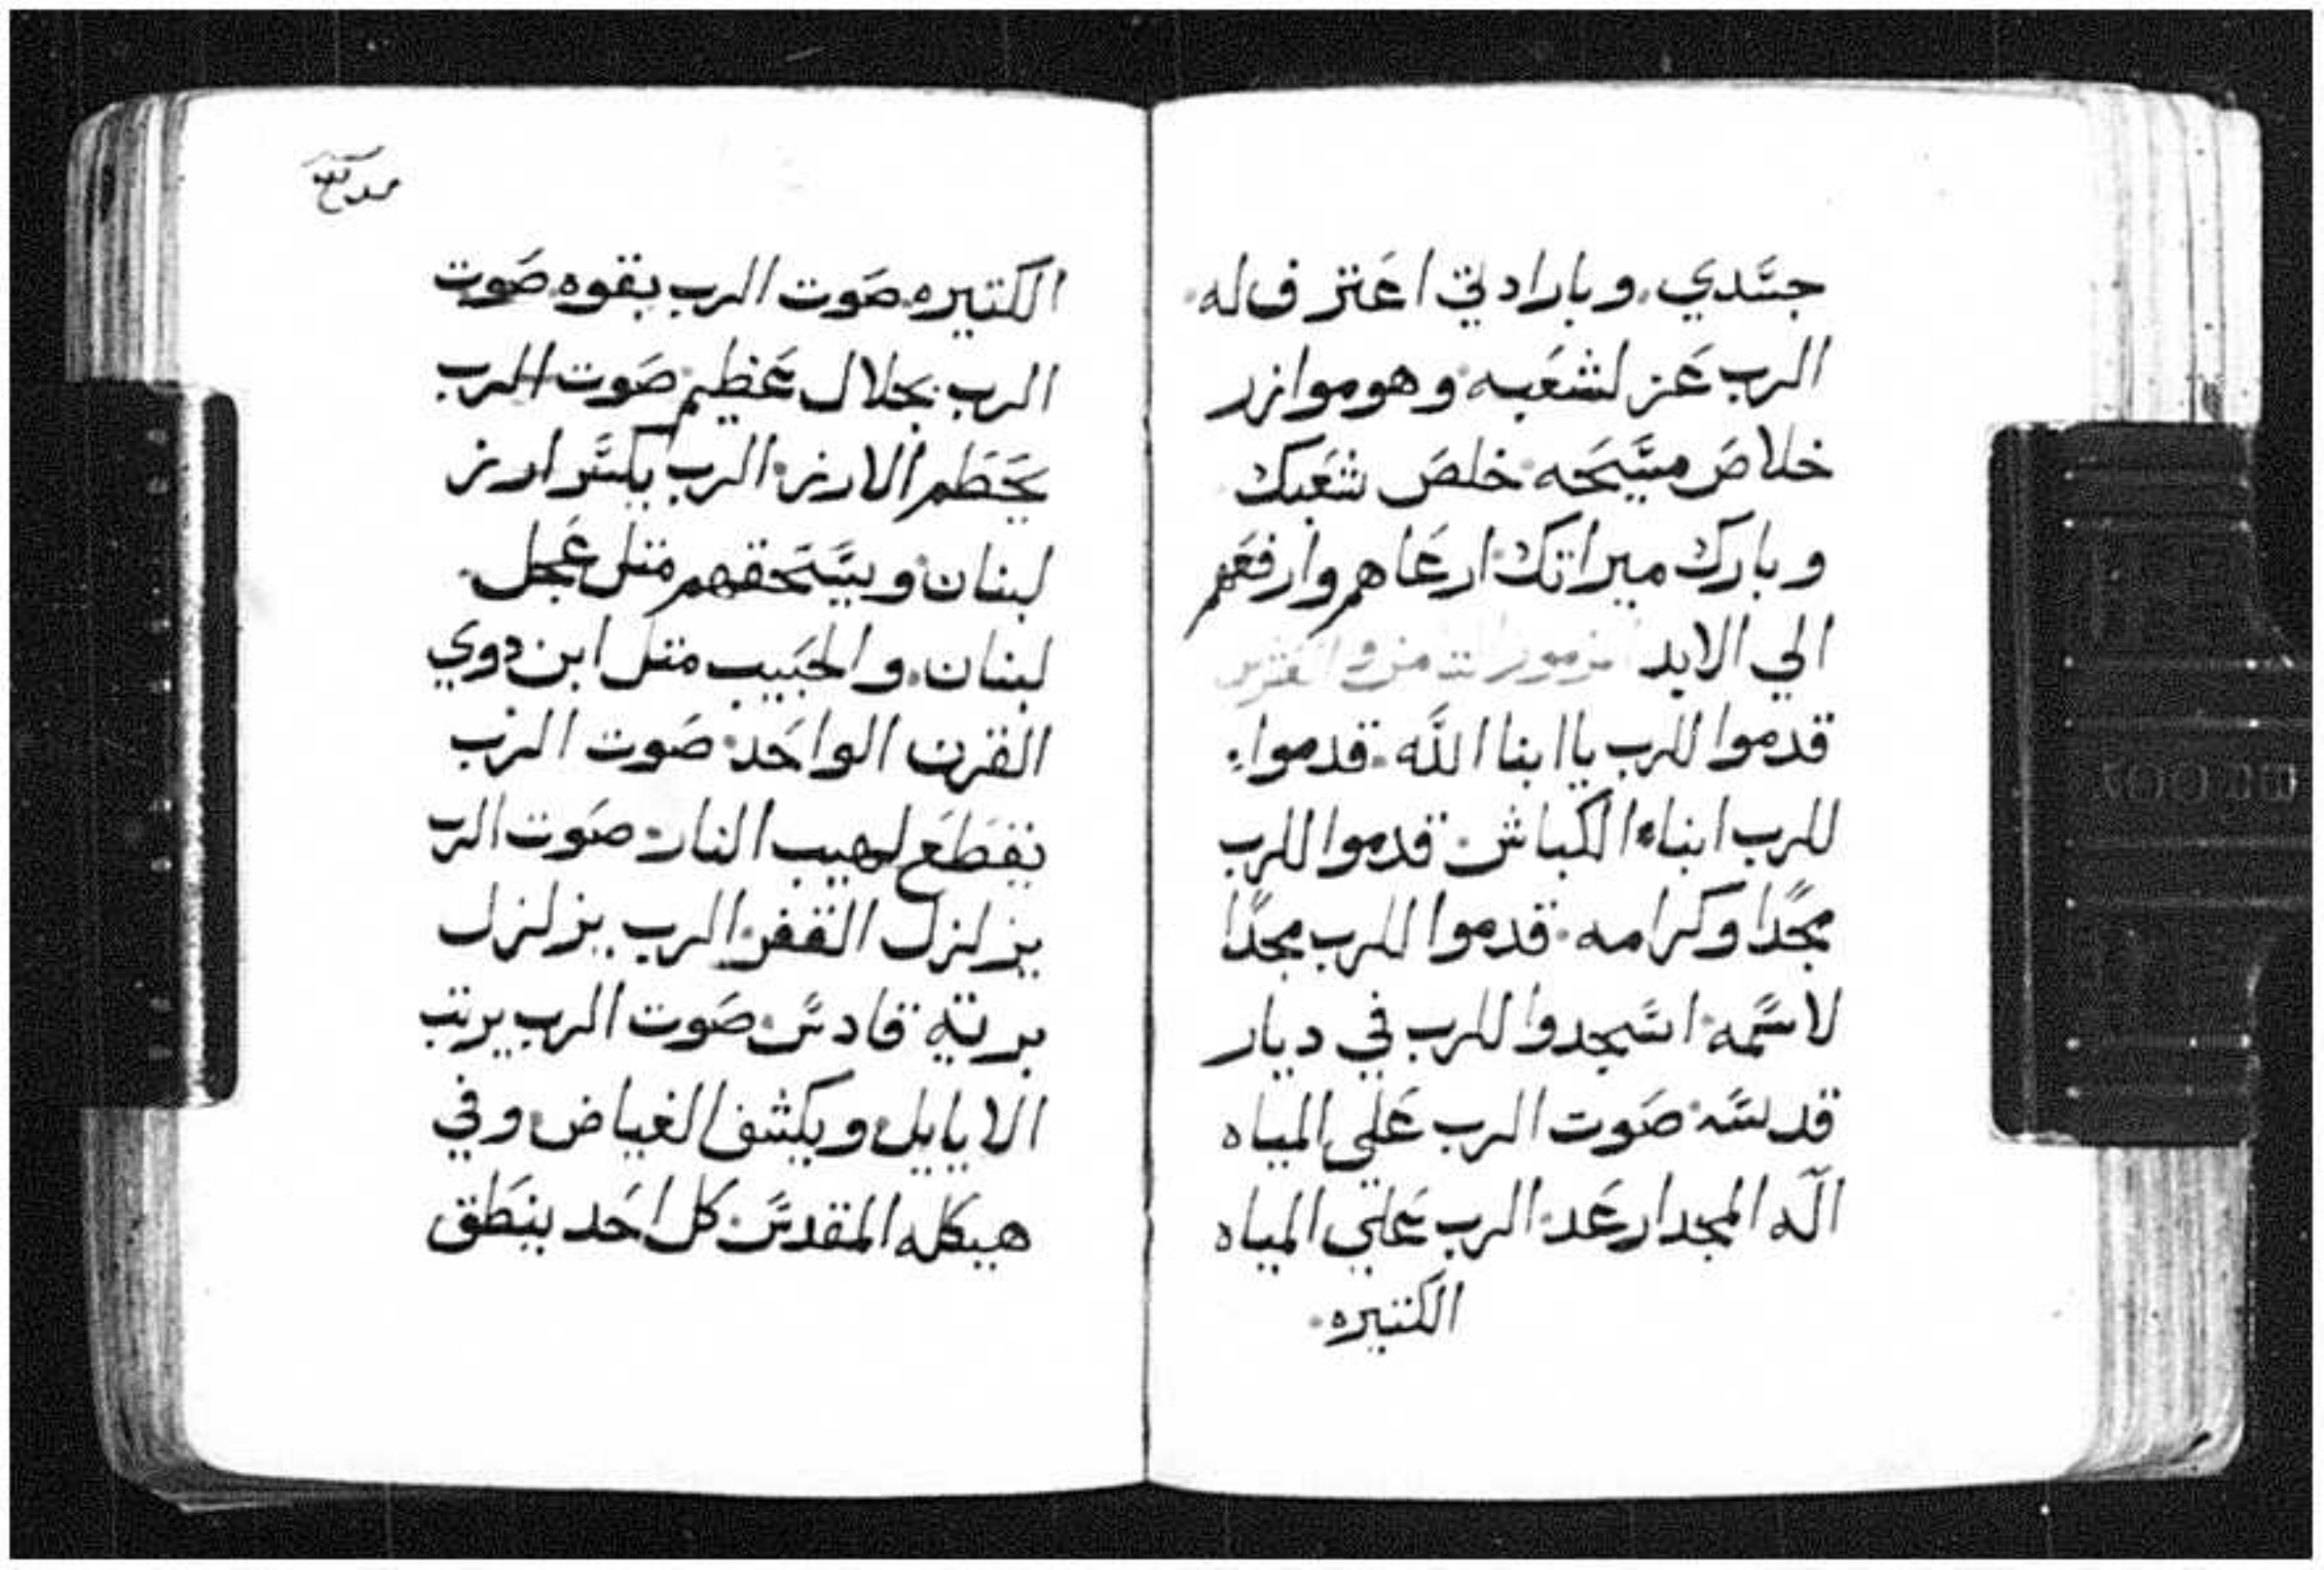 جسدي. وبارادتي اعترف له.
الرب عز لشعبه. وهو موازر
خلاص مسيحه. خلص شعبك
وبارك ميراتك. ارعاهم وارفعهم
الي الابد المزمور التامن والعشرين
قدموا للرب ياابنا الله. قدموا.
للرب ابناء الكباش. قدموا للرب
مجدًا وكرامه. قدموا للرب مجدًا
لاسمه. اسجدوا للرب في ديار
قدسه. صوت الرب علي المياه
اله المجد ارعد. الرب علي المياه
الكتيره.
الكتيره. صوت الرب بقوه. صوت
الرب بجلال عظيم. صوت الرب
يحطم الارز. الرب يكسر ارز
لبنان. ويسحقهم متل عجل.
لبنان. والحبيب متل ابن دوي
القرن الواحد. صوت الرب
يقطع لهيب النار. صوت الرب
يزلزل القفر. الرب يزلزل
برية قادس. صوت الرب يرتب
الايايل. ويكشف الغياض. وفي
هيكله المقدس. كل احد ينطق